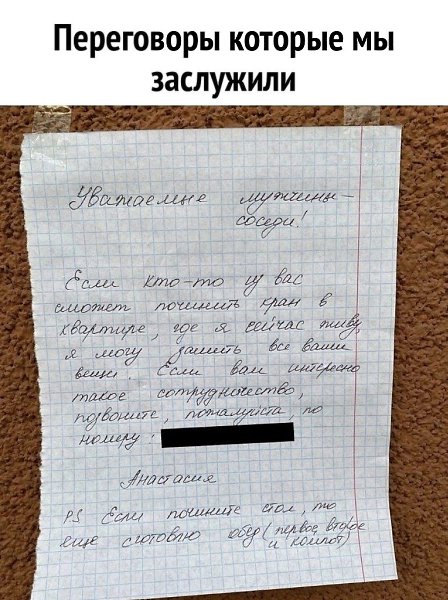 Переговоры которые мы
заслужили
Уважаемые мужчины-
соседи!
Если кто-то из вас
сможет починить кран в
квартире, где я сейчас живу,
я могу зашить все ваши
вещи. Если вам интересно
такое сотрудничество,
позвоните, пожалуйста, по
номеру:
Анастасия
PS Если почините стол, то
еще сготовлю обед (первое, второе
и компот)